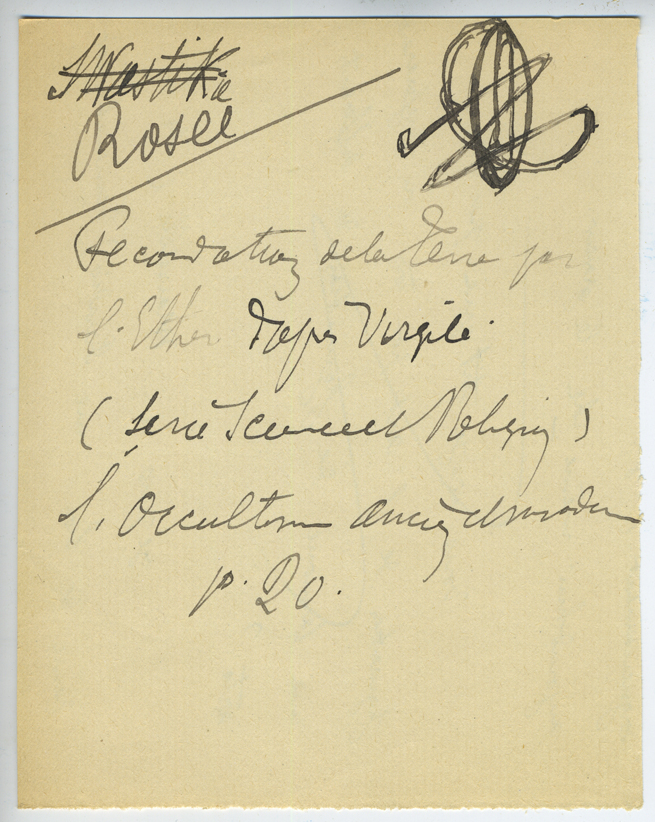 Swastika
Rosée
Fécondation de la Terre par
l'Ether d'après Virgile.
(Série Science et Religion)
l'Occultisme ancien et moderne
p. 20.